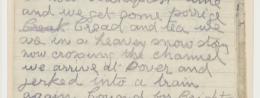 and we get some porrige
break bread and tea we
are in a heavey snow storm
now crossing the channel
we arrive at Dover and
jerked into a train
again bound for